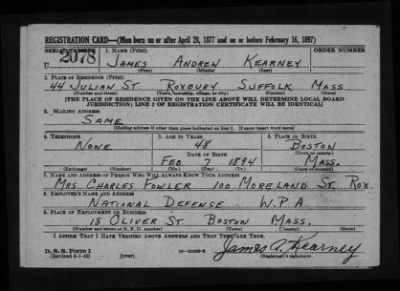 REGISTRATION CARD—(Men born on or after April 28, 1877 and on or before February 16, 1897)
SERIAL NUMBER 1. NAME (Print) ORDER NUMBER
U 2078 JAMES ANDREW KEARNEY
(First) (Middle) (Last)
2. PLACE OF RESIDENCE (Print)
44 JULIAN ST. ROXBURY SUFFOLK MASS.
(Number and street) (Town, township, village, or city) (County) (State)
[THE PLACE OF RESIDENCE GIVEN ON THE LINE ABOVE WILL DETERMINE LOCAL BOARD
JURISDICTION; LINE 2 OF REGISTRATION CERTIFICATE WILL BE IDENTICAL]
3. MAILING ADDRESS
SAME
[Mailing address if other than place indicated on line 2. If same insert word same]
4. TELEPHONE 5. AGE IN YEARS 6. PLACE OF BIRTH
NONE 48 BOSTON
DATE OF BIRTH (Town or county)
FEB 7 1894 MASS.
(Exchange) (Number) (Mo.) (Day) (Yr.) (State or country)
7. NAME AND ADDRESS OF PERSON WHO WILL ALWAYS KNOW YOUR ADDRESS
MRS CHARLES FOWLER 100 MORELAND ST. ROX.
8. EMPLOYER'S NAME AND ADDRESS
NATIONAL DEFENSE - W.P.A.
9. PLACE OF EMPLOYMENT OR BUSINESS
18 OLIVER ST BOSTON MASS.
(Number and street or R. F. D. number) (Town) (County) (State)
I AFFIRM THAT I HAVE VERIFIED ABOVE ANSWERS AND THAT THEY ARE TRUE.
D. S. S. Form 1 James A. Kearney
(Revised 4-1-42) (over) (Registrant's signature)